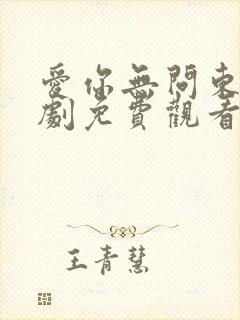 愛你無問東
劇免費觀看
王青慧